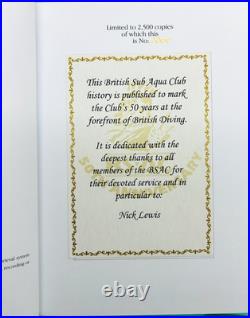 Limited to 2,500 copies
of which this
is No.
This British Sub Aqua Club
history is published to mark
the Club's 50 years at the
forefront of British Diving.
It is dedicated with the
deepest thanks to all
members of the BSAC for
their devoted service and in
particular to:
Nick Lewis
50TH ANNIVERSARY
retrieval system
recording or